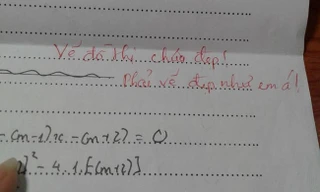 Vẽ đồ thị cháo đẹp!
Phải vẽ đẹp như em á!
-(m-1)x-(m+2)=0
]²-4.1.[-(m+2)]